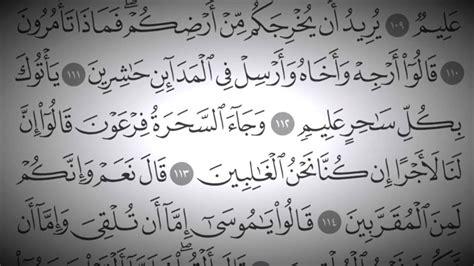 عَلِيمٌ ١٠٩ يُرِيدُ أَن يُخْرِجَكُم مِّنْ أَرْضِكُمْ ۖ فَمَاذَا تَأْمُرُونَ
١١٠ قَالُوٓا۟ أَرْجِهْ وَأَخَاهُ وَأَرْسِلْ فِى ٱلْمَدَآئِنِ حَـٰشِرِينَ ١١١ يَأْتُوكَ
بِكُلِّ سَـٰحِرٍ عَلِيمٍ ١١٢ وَجَآءَ ٱلسَّحَرَةُ فِرْعَوْنَ قَالُوٓا۟ إِنَّ
لَنَا لَأَجْرًا إِن كُنَّا نَحْنُ ٱلْغَـٰلِبِينَ ١١٣ قَالَ نَعَمْ وَإِنَّكُمْ
لَمِنَ ٱلْمُقَرَّبِينَ ١١٤ قَالُوا۟ يَـٰمُوسَىٰٓ إِمَّآ أَن تُلْقِىَ وَإِمَّآ أَن